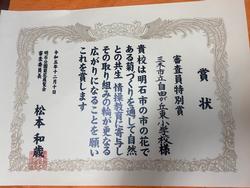 賞状
審査員特別賞
三木市立自由が丘東小学校様
貴校は明石市の市の花で
ある菊づくりを通して自然
との共生 情操教育に寄与し
その取り組みの輪が更なる
広がりになることを願い
これを賞します
令和五年十二月十日
審査委員長
松本和歳